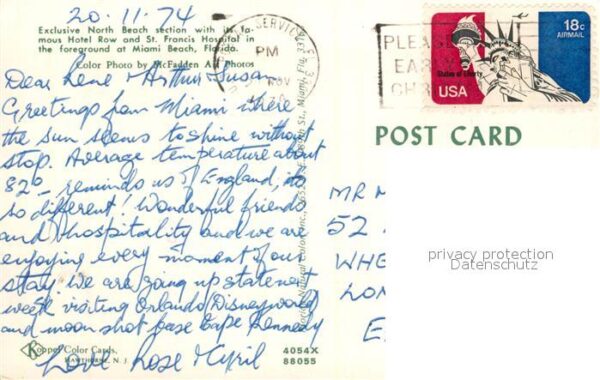 20.11.74
Exclusive North Beach section with its fa-
mous Hotel Row and St. Francis Hospital in
the foreground at Miami Beach, Florida.
Color Photo by McFadden Air Photos
Dear Lene Arthur Susan
Greetings from Miami where
the sun seems to shine without
stop. Average temperature about
82° – reminds us of England, its
so different! Wonderful friends
and hospitality and we are
enjoying every moment of our
stay. We are going up state next
week visiting Orlando Disneyworld
and moon shot base Cape Kennedy
Love Rose Cyril
Koppel Color Cards,
HAWTHORNE, N. J.
4054X
88055
SERVICE
PM
NOV
PLEASE
EARLY
CHR
18c
AIRMAIL
Statue of Liberty
USA
POST CARD
MR
52
WHE
LON
E
privacy protection
Datenschutz